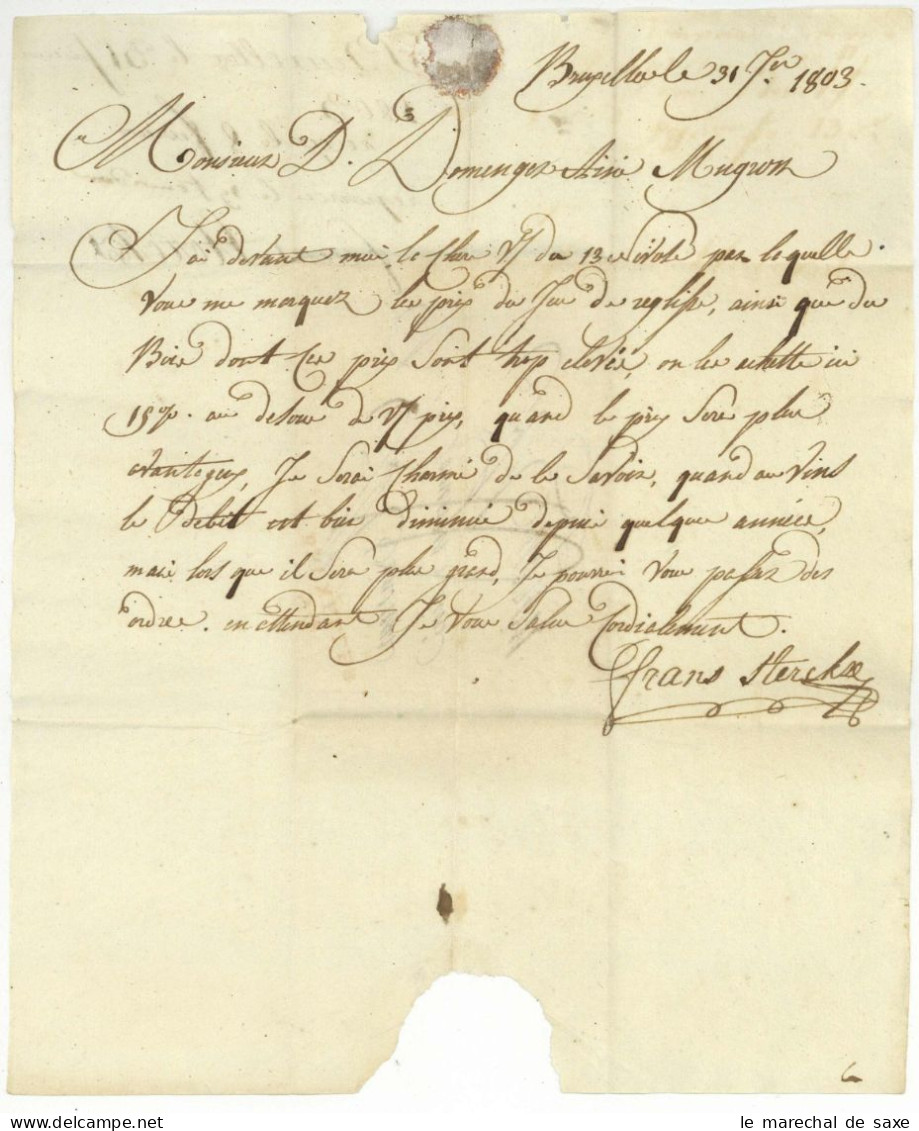 Bruxelles le 31 Jer 1803.
Monsieur D. Domenger Ainé Mugron
J'ai devant moi le chere V/ du 13 Nivose par lequelle
vous me marquez les prix du Jus de reglisse, ainsi que du
Bois dont ces prix sont trop elevés, on les achette ici
15 % au desous de V/ prix, quand le prix sera plus
avantageux, Je serai charmé de le savoir, quand au vins
le Debit est bien diminué depuis quelque année,
mais lors que il sera plus grand, Je pourrai vous passer des
ordres. en attendant Je vous salue Cordialement.
frans Sterckx
le marechal de saxe